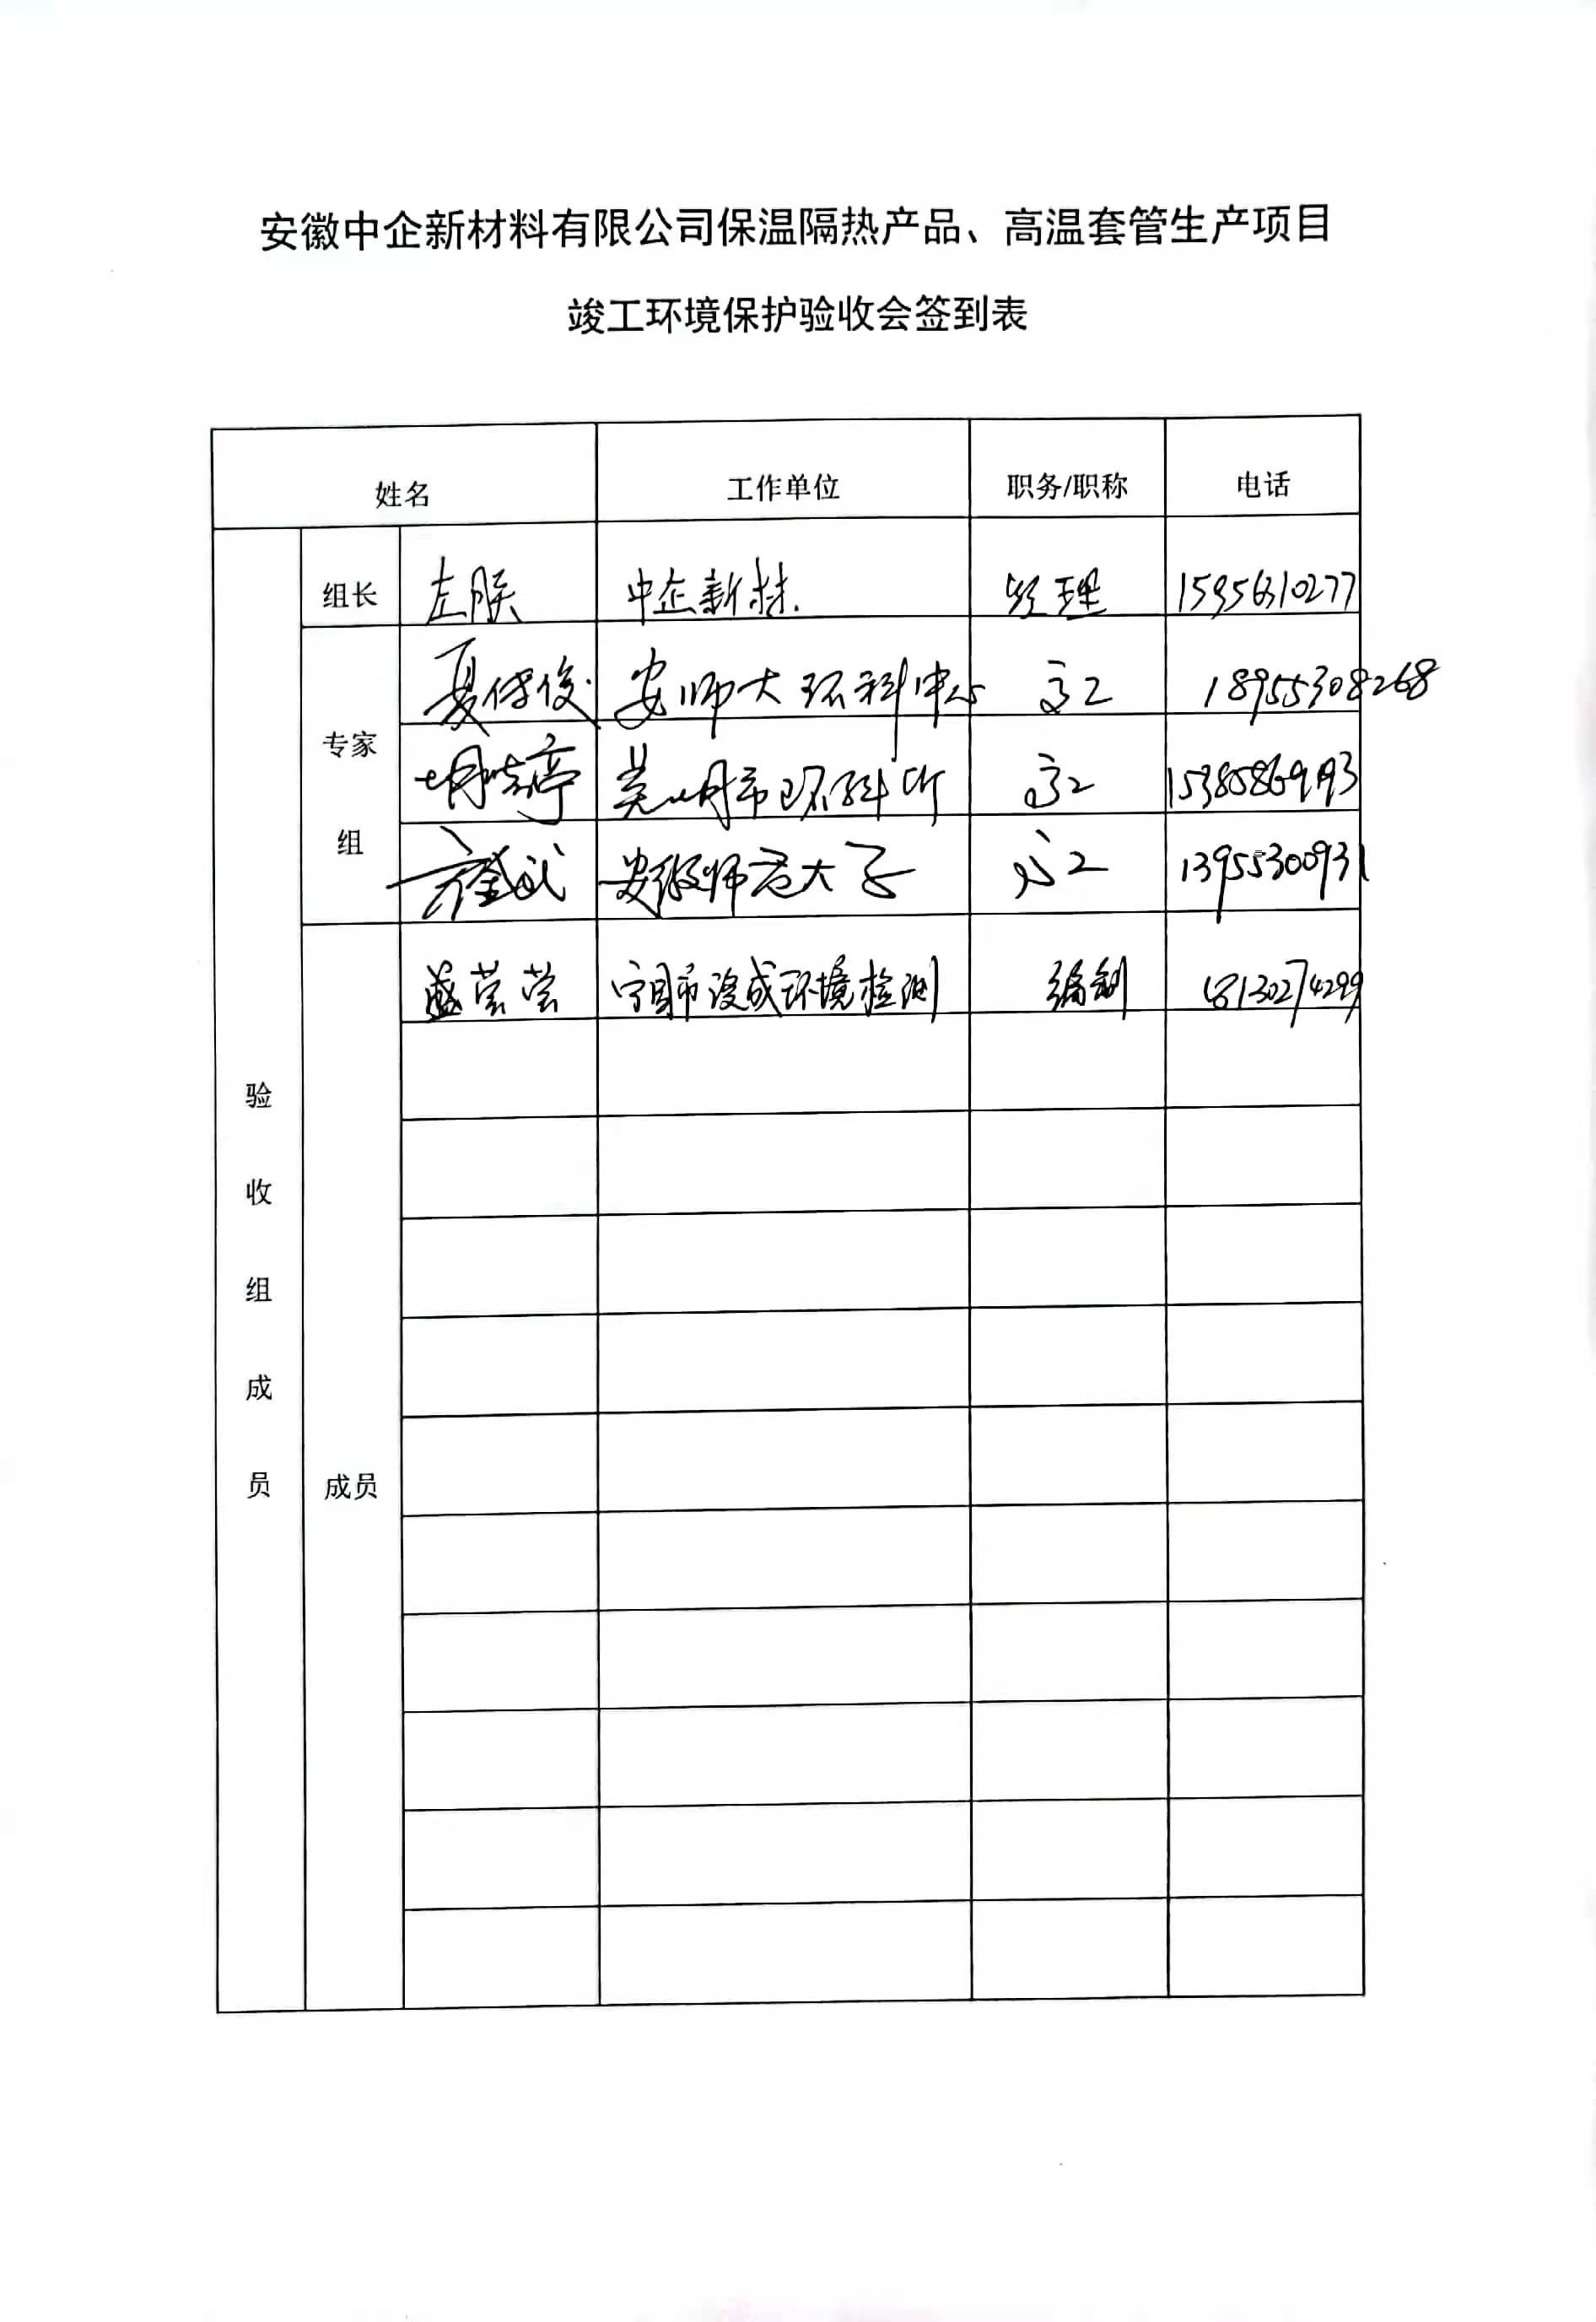 安徽中企新材料有限公司保温隔热产品、高温套管生产项目
竣工环境保护验收会签到表
姓名 工作单位 职务/职称 电话
组长 左朕 中企新材. 经理 15956310277
夏保俊 安师大环科中心 高工 18955308268
专家 芜湖市环科所 高工 15385869193
组 安徽师范大学 高工 13955300931
盛芸芸 宁国市浚成环境检测 编制 18130274299
验
收
组
成
员 成员